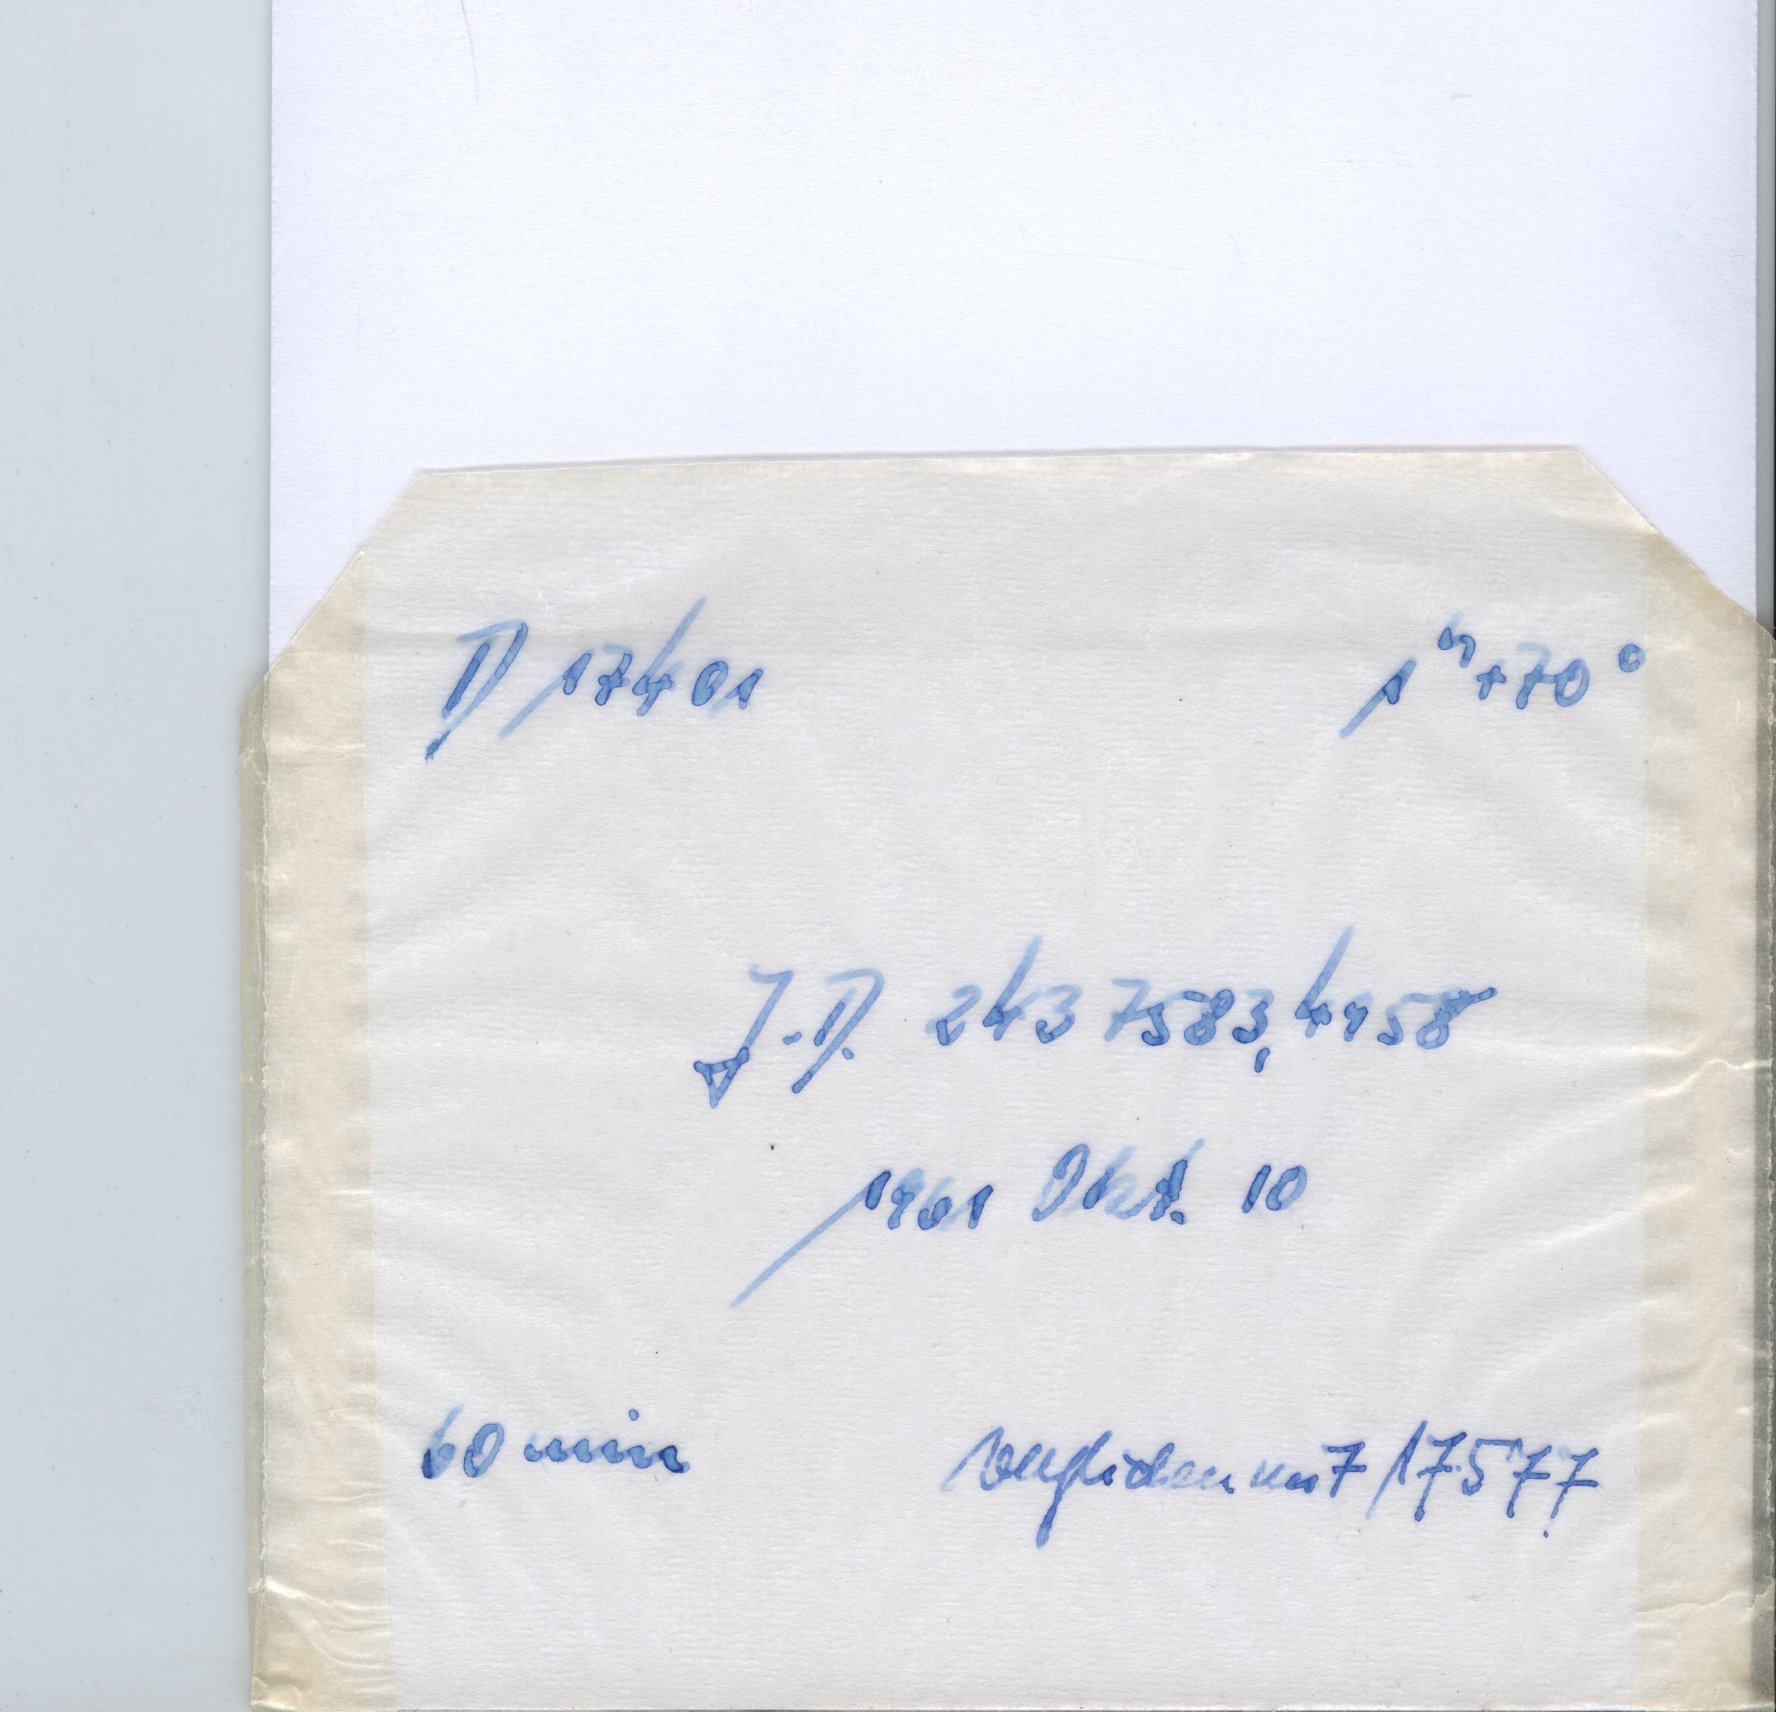 D 17401
1ʰ +70°
J.D. 243 7583,4958
1961 Okt. 10
60 min
verglichen mit 17577